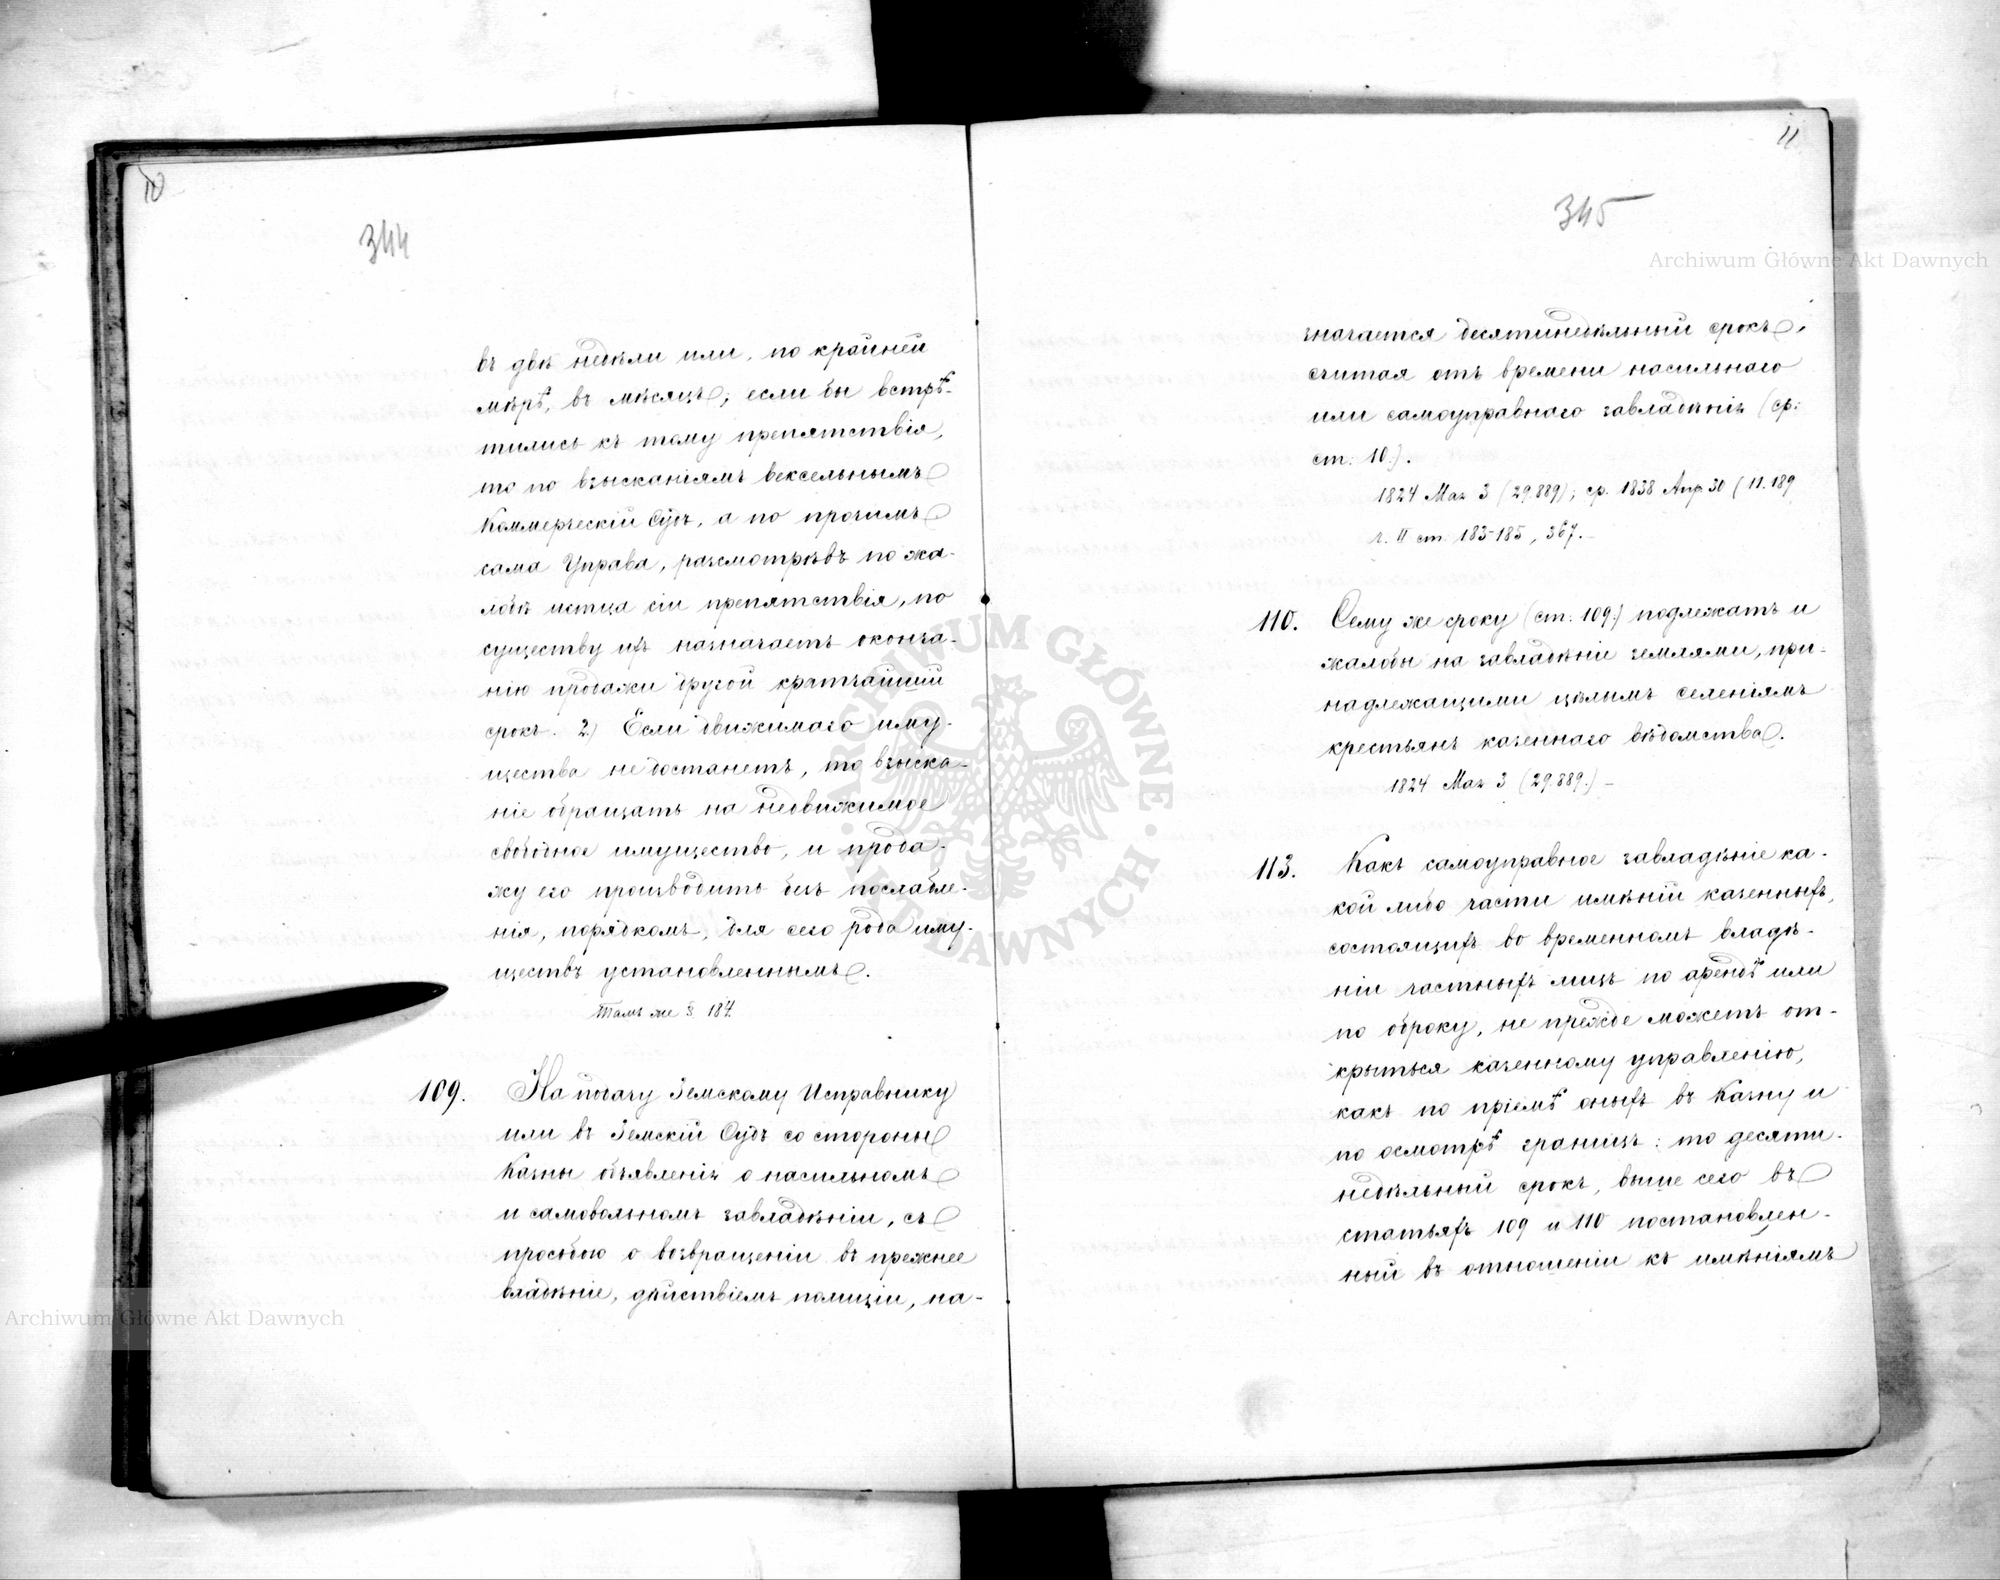 10
344
въ двѣ недѣли или, по крайней
мѣрѣ, въ мѣсяцъ; если бы встрѣ-
тились къ тому препятствія,
то по взысканіямъ вексельнымъ
Коммерческій Судъ, а по прочимъ
сама Управа, разсмотрѣвъ по жа-
лобѣ истца сіи препятствія, по
существу ихъ назначаетъ оконча-
нію продажи другой кратчайшій
срокъ. 2) Если движимаго иму-
щества не достанетъ, то взыска-
ніе обращать на недвижимое
свободное имущество, и прода-
жу его производить безъ послабле-
нія, порядкомъ, для сего рода иму-
ществъ установленнымъ.
Тамъ же § 184.
109. На подачу Земскому Исправнику
или въ Земскій Судъ со стороны
Казны объявленія о насильномъ
и самовольномъ завладѣніи, съ
просьбою о возвращеніи въ прежнее
владѣніе, дѣйствіемъ полиціи, на-
11
345
значается десятинедѣльный срокъ,
считая отъ времени насильнаго
или самоуправнаго завладѣнія (ср:
ст: 10.).
1824 Мая 3 (29.889); ср. 1838 Апр. 30 (11.189
ч. II ст. 183-185, 367.
110. Сему же сроку (ст: 109.) подлежатъ и
жалобы на завладѣніе землями, при-
надлежащими цѣлымъ селеніямъ
крестьянъ казеннаго вѣдомства.
1824 Мая 3 (29.889.) –
113. Какъ самоуправное завладѣніе ка-
кой либо части имѣній казенныхъ,
состоящихъ во временномъ владѣ-
ніи частныхъ лицъ по арендѣ или
по оброку, не прежде можетъ от-
крыться казенному управленію,
какъ по пріемѣ оныхъ въ Казну и
по осмотрѣ границъ: то десяти-
недѣльный срокъ, выше сего въ
статьяхъ 109 и 110 постановлен-
ный въ отношеніи къ имѣніямъ
Archiwum Główne Akt Dawnych
Archiwum Główne Akt Dawnych
ARCHIWUM GŁÓWNE
AKT DAWNYCH